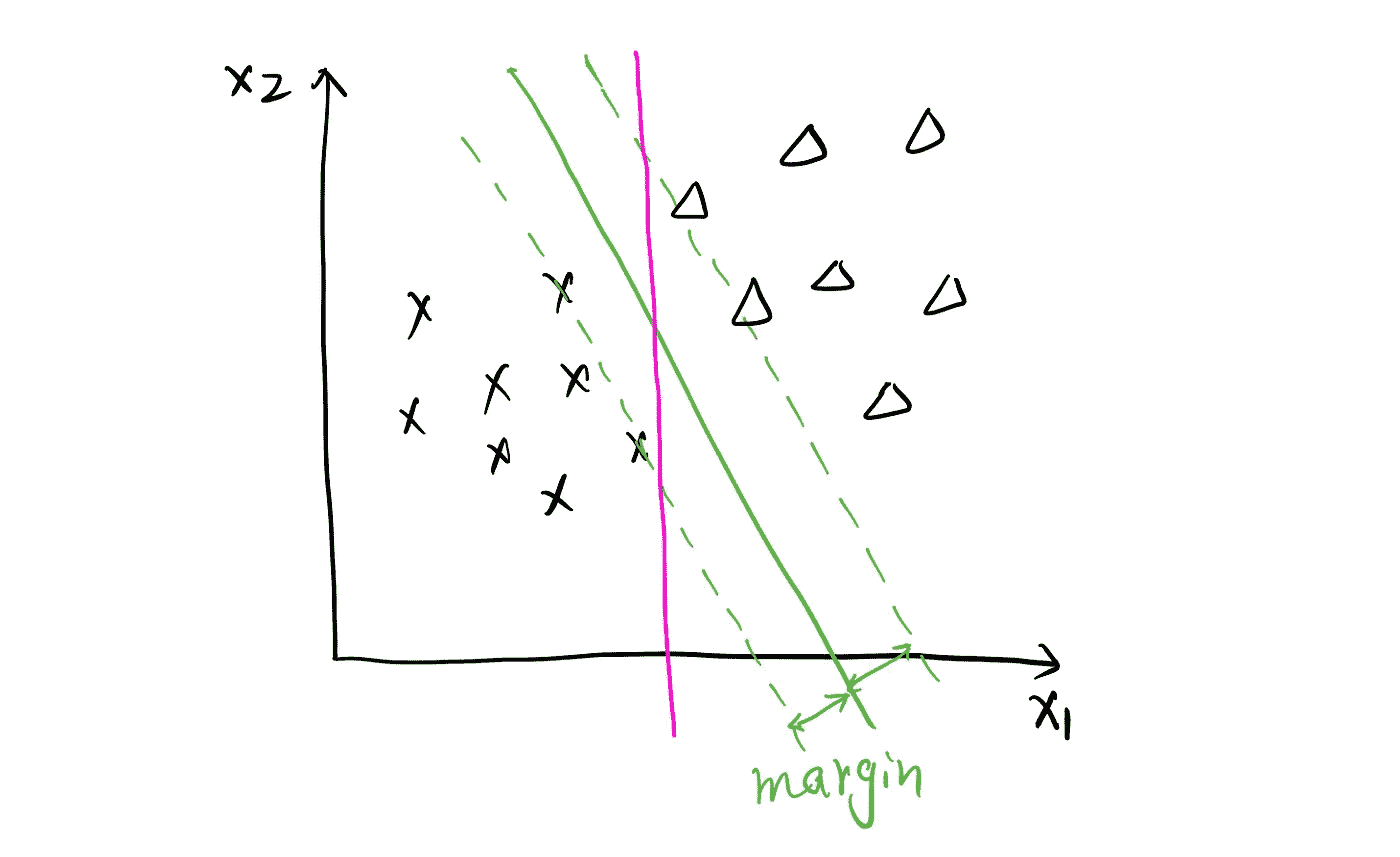 x2
x1
margin